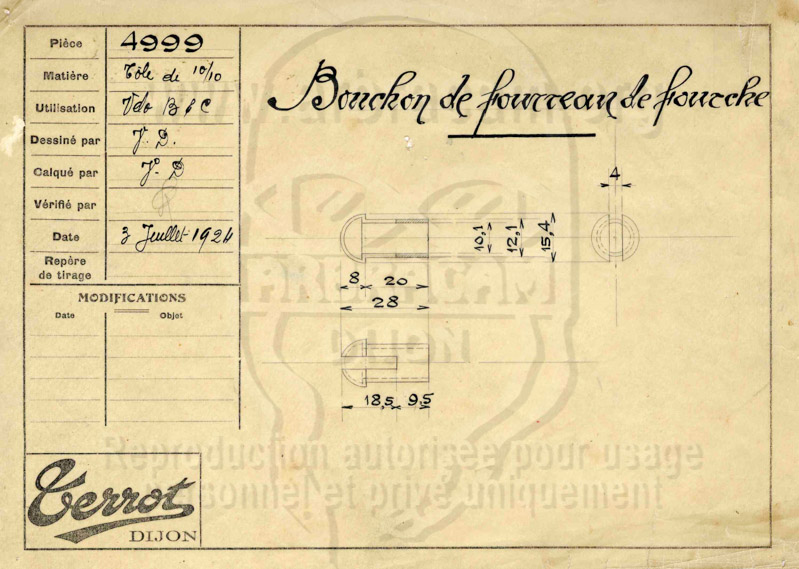 Pièce 4999
Matière Tôle de 10/10
Utilisation Vélo B & C
Dessiné par J. D.
Calqué par J. D
Vérifié par
Date 3 Juillet 1924
Repère
de tirage
MODIFICATIONS
Date Objet
Bouchon de fourreau de fourche
4
10,1 12,1 15,4
8 20
28
18,5 9,5
DIJON
Reproduction autorisée pour usage
personnel et privé uniquement
Terrot
DIJON